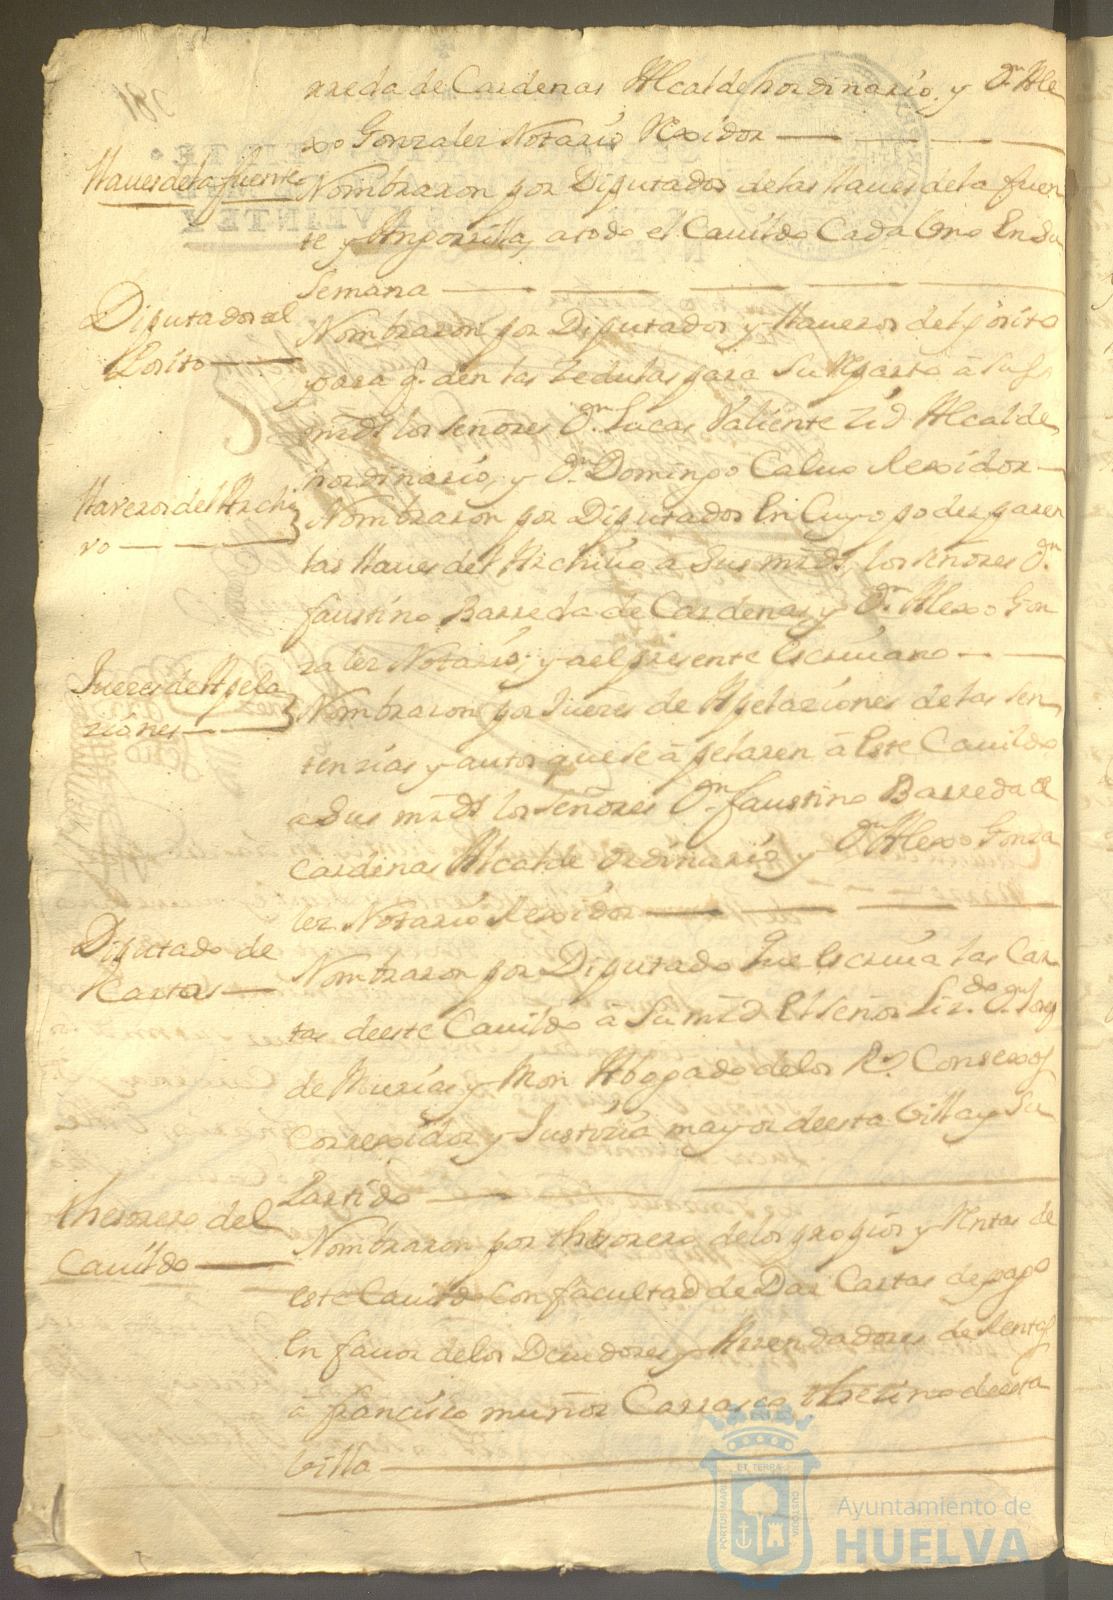 rreda de Cardenas Alcalde hordinario, y Dn Ale
xo Gonzales Notario Rexidor
llaues de la fuente
Nombraron por Diputados de las llaues de la fuen
te y Angorrilla, a todo el Cauildo Cada Uno En su
semana
Diputados al
Posito
Nombraron por Diputados y llaueros del posito
para q. den las zedulas para su Reparto à sus
mrds los señores Dn Lucas Valiente Zid Alcalde
hordinario, y Dn Domingo Caluo Rexidor
llaveros del Archi
vo
Nombraron por Diputados En Cuyo poder paren
las llaues del Archiuo a sus mrds, los señores Dn
faustino Barreda de Cardenas, y Dn Alexo Gon
zales Notario, y a el presente escriuano
Jueces de Apela
ziones
Nombraron por Jueces de Apelaziones de las sen
tenzias y autos que se àpelaren à Este Cauildo
a sus mrds los señores Dn faustino Barreda de
Cardenas Alcalde ordinario, y Dn Alexo Gonza
lez Notario Rexidor
Diputado de
Cartas
Nombraron por Diputado que escriua las Car
tas de este Cauildo à su mrd El señor Lizdo Dn
de Murias y Mon Abogado de los Rs Consexos
Correxidor y Justizia mayor de esta Villa y su
Partido
thesorero del
Cauildo
Nombraron por thesorero de los propios y Rentas de
este Cauildo con facultad de Dar Cartas de pago
En fauor de los Deudores y Arrendadores de Rentas
à francisco muñoz Carrasco Vezino de esta
Villa
PORTUS MARIS
ET TERRÆ
CUSTODIA
Ayuntamiento de
HUELVA